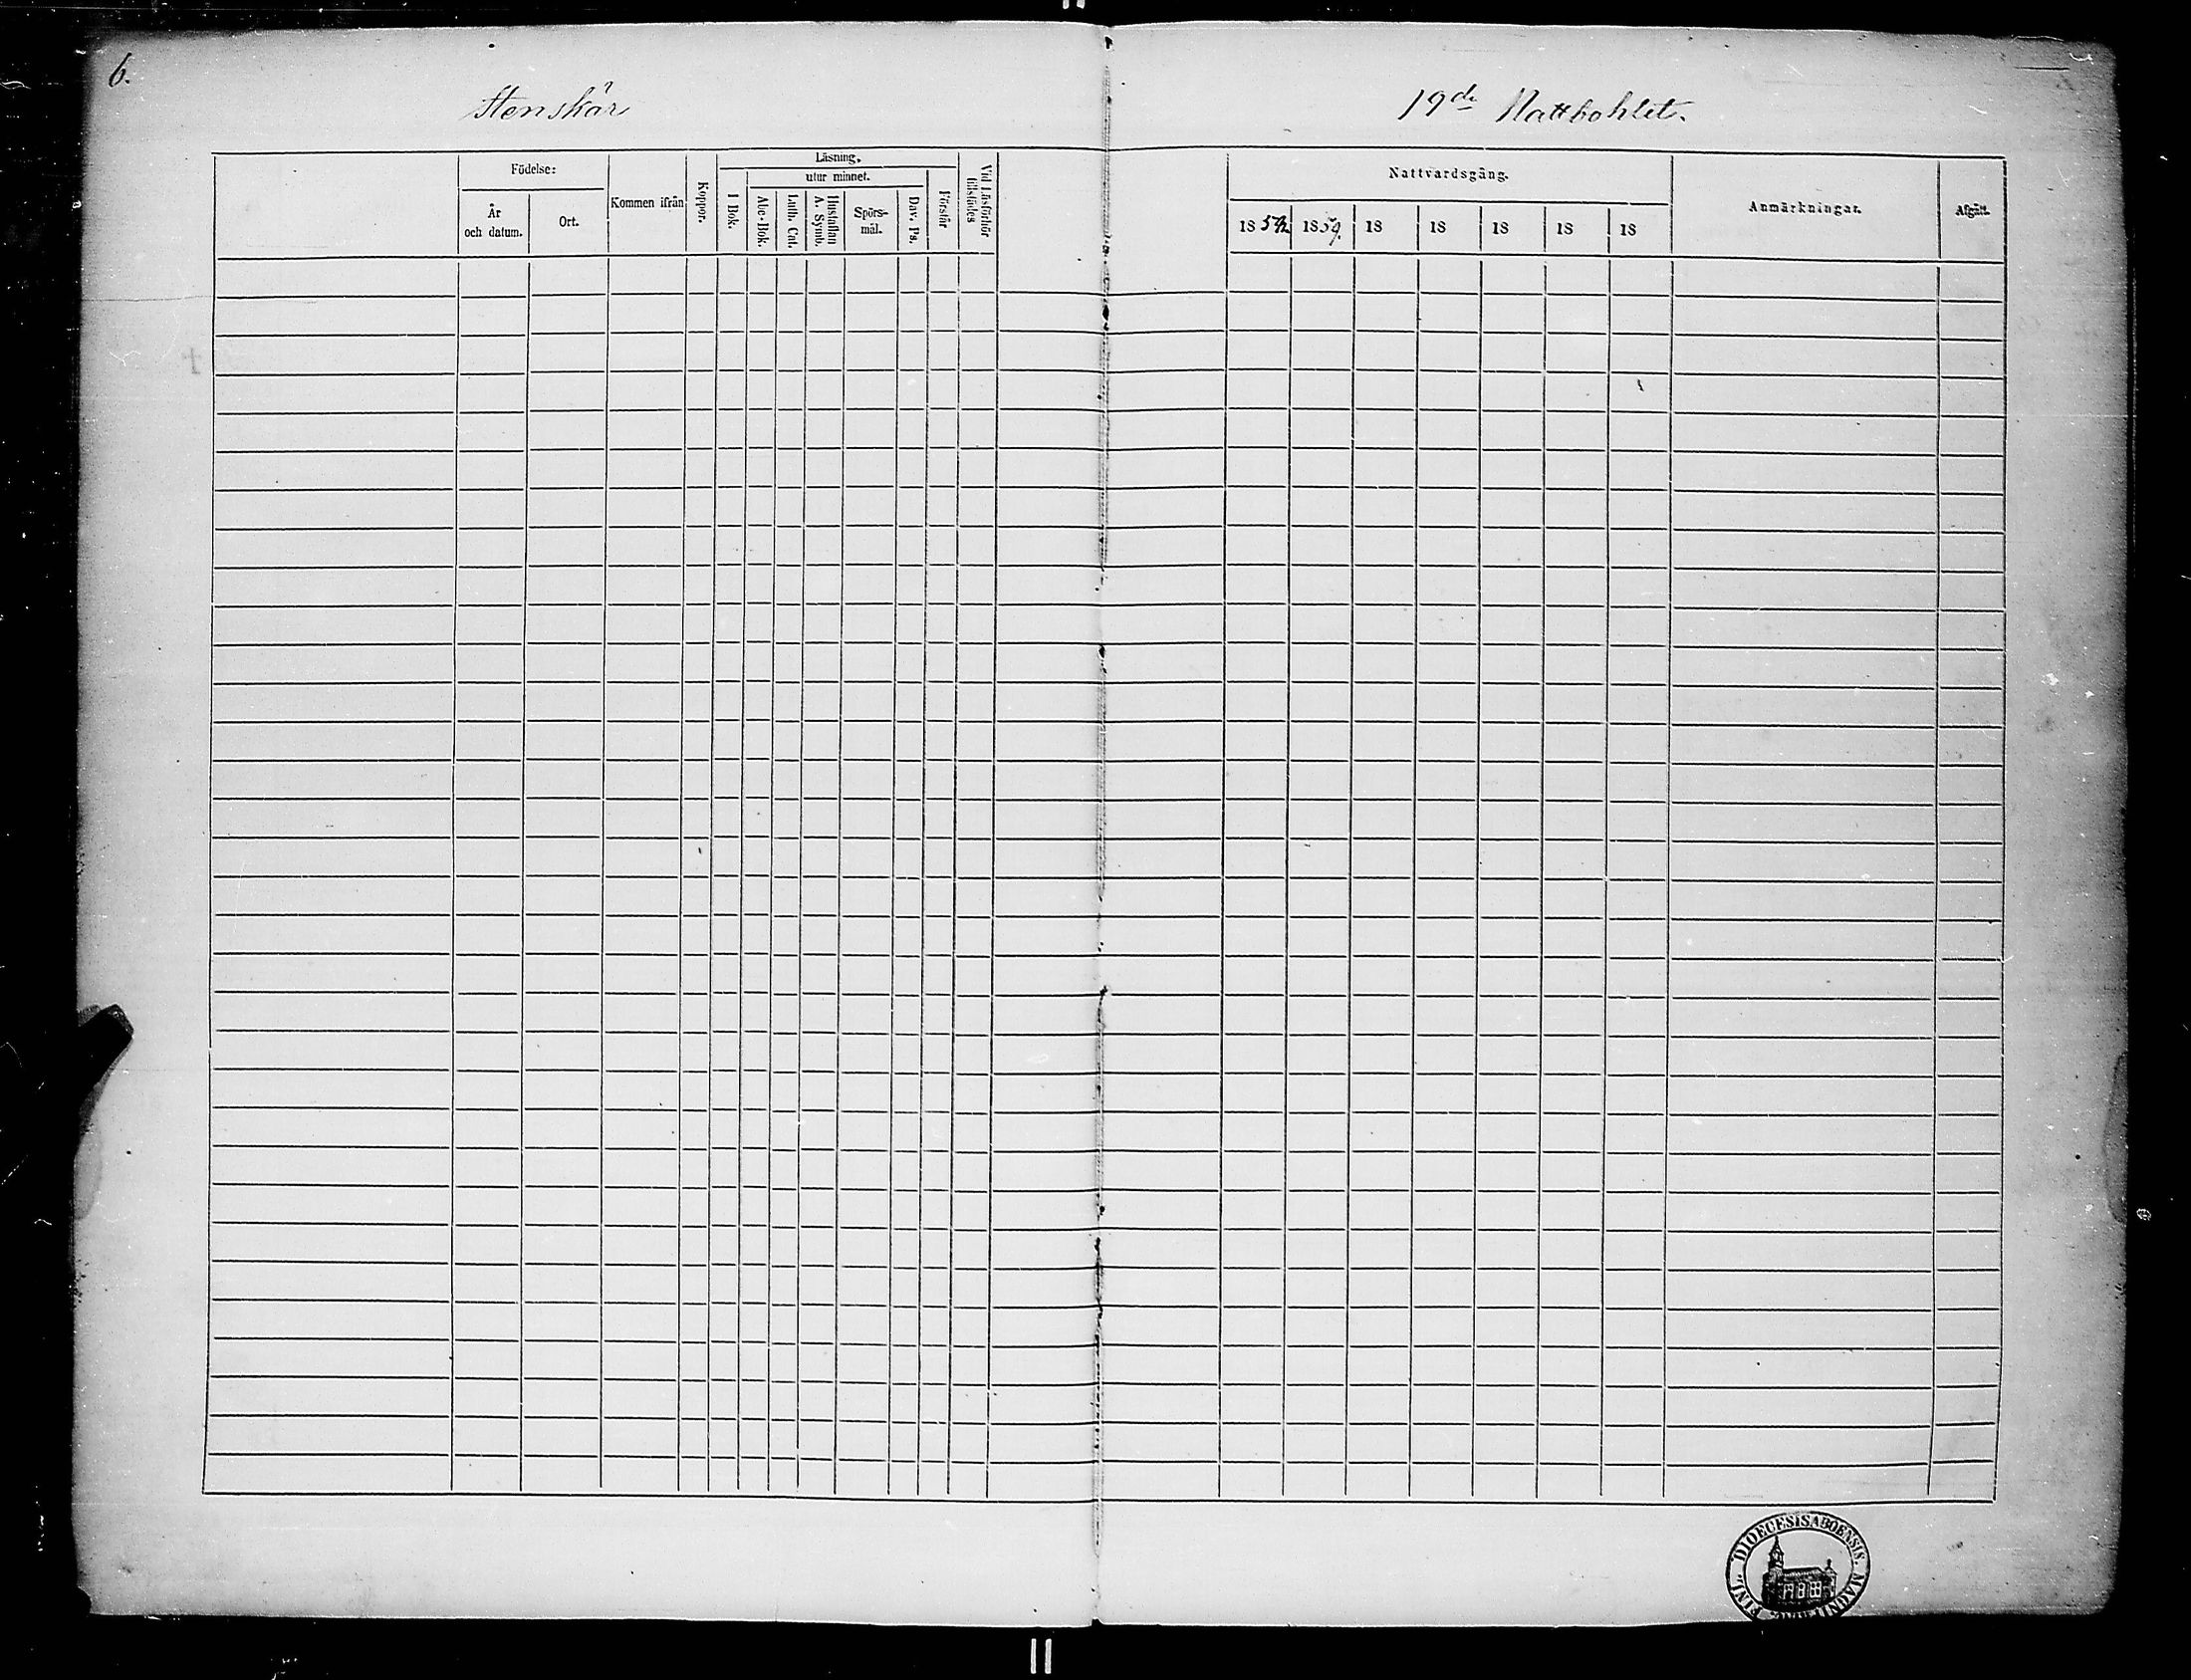 6.
Stenskär
19de Nattbohlet.
Födelse:
År
och datum.
Ort.
Kommen ifrån
Koppor.
Läsning.
I Bok.
utur minnet.
Abc-Bok.
Luth. Cat.
Hustaflan
A. Symb.
Spörs-
mål.
Dav. Ps.
Förstår
Vid Läsförhör
tillstädes
Nattvardsgång.
18 1859. 18 18 18 18 18
Anmärkningar.
Afgått.
DIOECESIS ABOENSIS. MAGNI FINL.